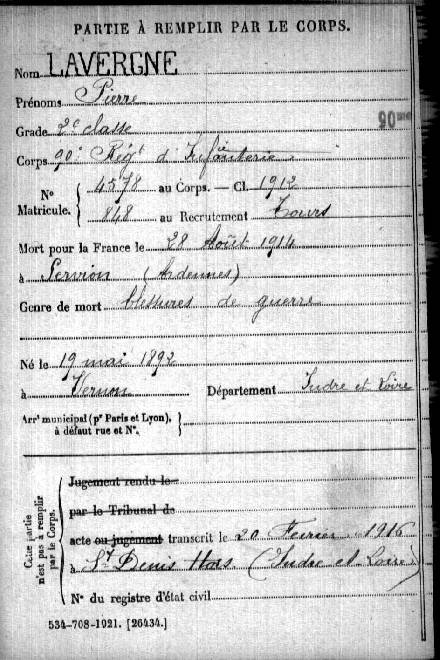 PARTIE À REMPLIR PAR LE CORPS.
Nom LAVERGNE
Prénoms Pierre
Grade 2e classe
90me
Corps 90e Régt d'Infanterie
No Matricule. { 4578 au Corps. — Cl. 1912
848 au Recrutement Tours
Mort pour la France le 28 Août 1914
à Servion (Ardennes)
Genre de mort blessures de guerre
Né le 19 mai 1892
à Vernon Département Indre et Loire
Arrt municipal (pr Paris et Lyon), à défaut rue et No. }
Cette partie n'est pas à remplir par le Corps.
Jugement rendu le
par le Tribunal de
acte ou jugement transcrit le 20 Fevrier 1916
à St Denis Hors (Indre et Loire)
No du registre d'état civil
534-708-1921. [26434.]